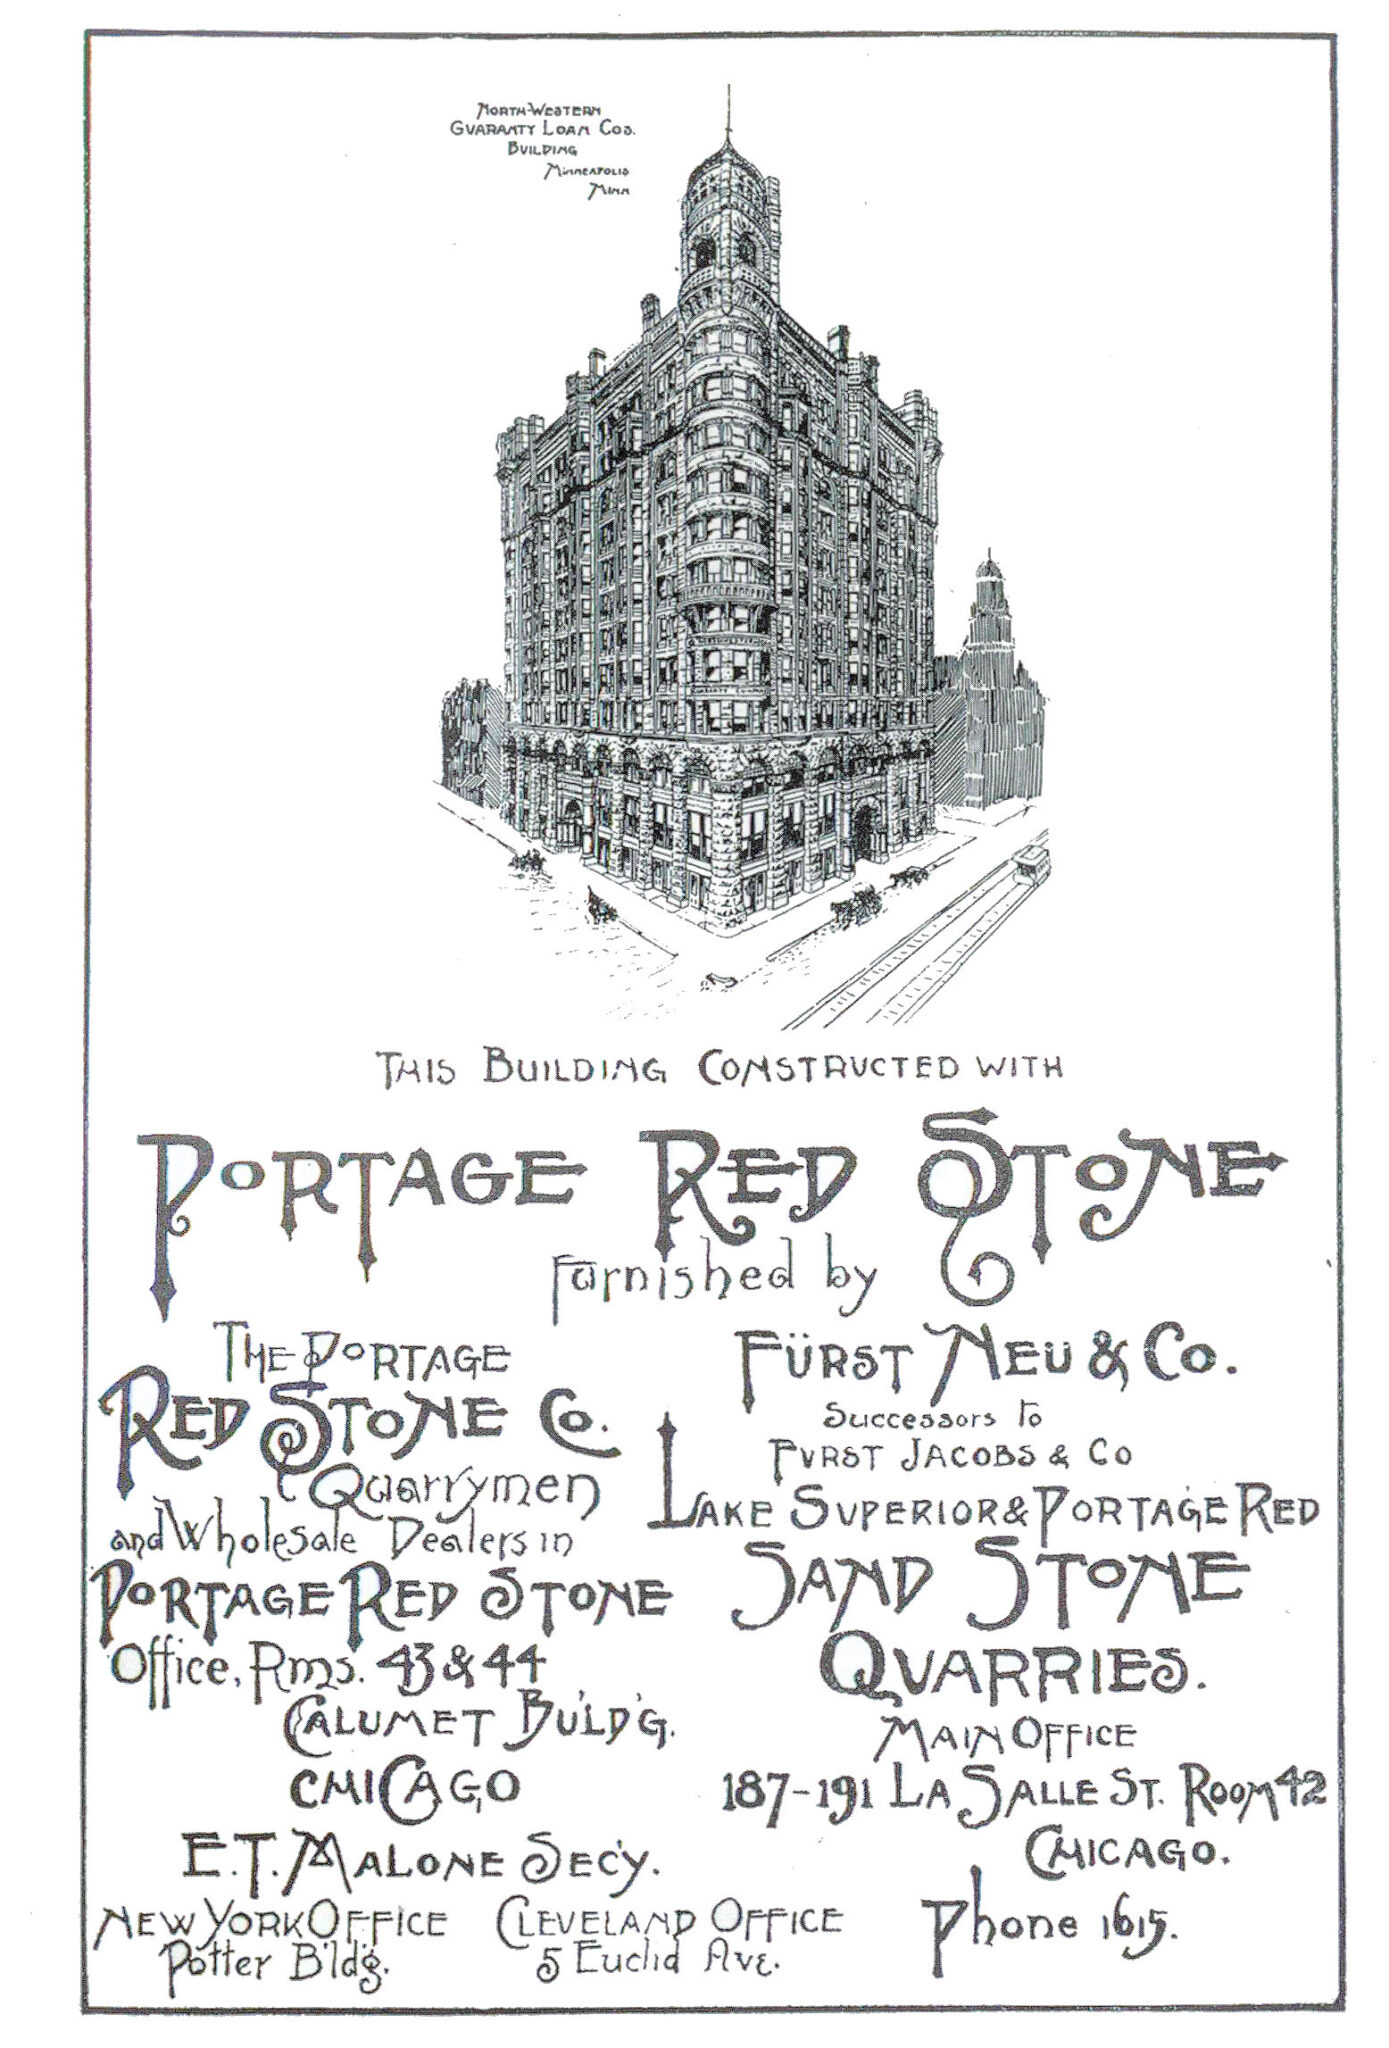 North-Western
Guaranty Loan Cos.
Building
Minneapolis
Minn
This Building Constructed with
Portage Red Stone
Furnished by
The Portage
Red Stone Co.
Quarrymen
and Wholesale Dealers in
Portage Red Stone
Office, Rms. 43 & 44
Calumet Buld'g.
Chicago
E. T. Malone Sec'y.
New York Office
Potter Bldg.
Cleveland Office
5 Euclid Ave.
Fürst Neü & Co.
Successors to
Fvrst Jacobs & Co
Lake Svperior & Portage Red
Sand Stone
Qvarries.
Main Office
187-191 La Salle St. Room 42
Chicago.
Phone 1615.